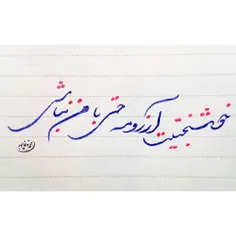 خوشبختیت آرزومه حتی با من نباشی